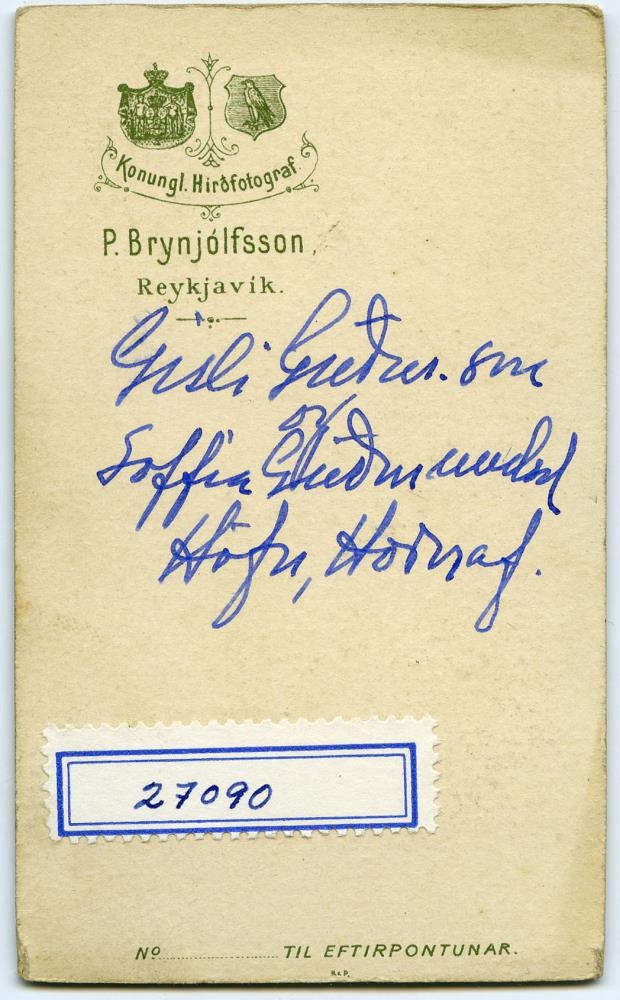 Konungl. Hirðfotograf
P. Brynjólfsson,
Reykjavík.
Gísli Guðm. son
og
Soffía Guðmundsd
Höfn, Hornaf.
27090
No ............ TIL EFTIRPONTUNAR.
H.&P.